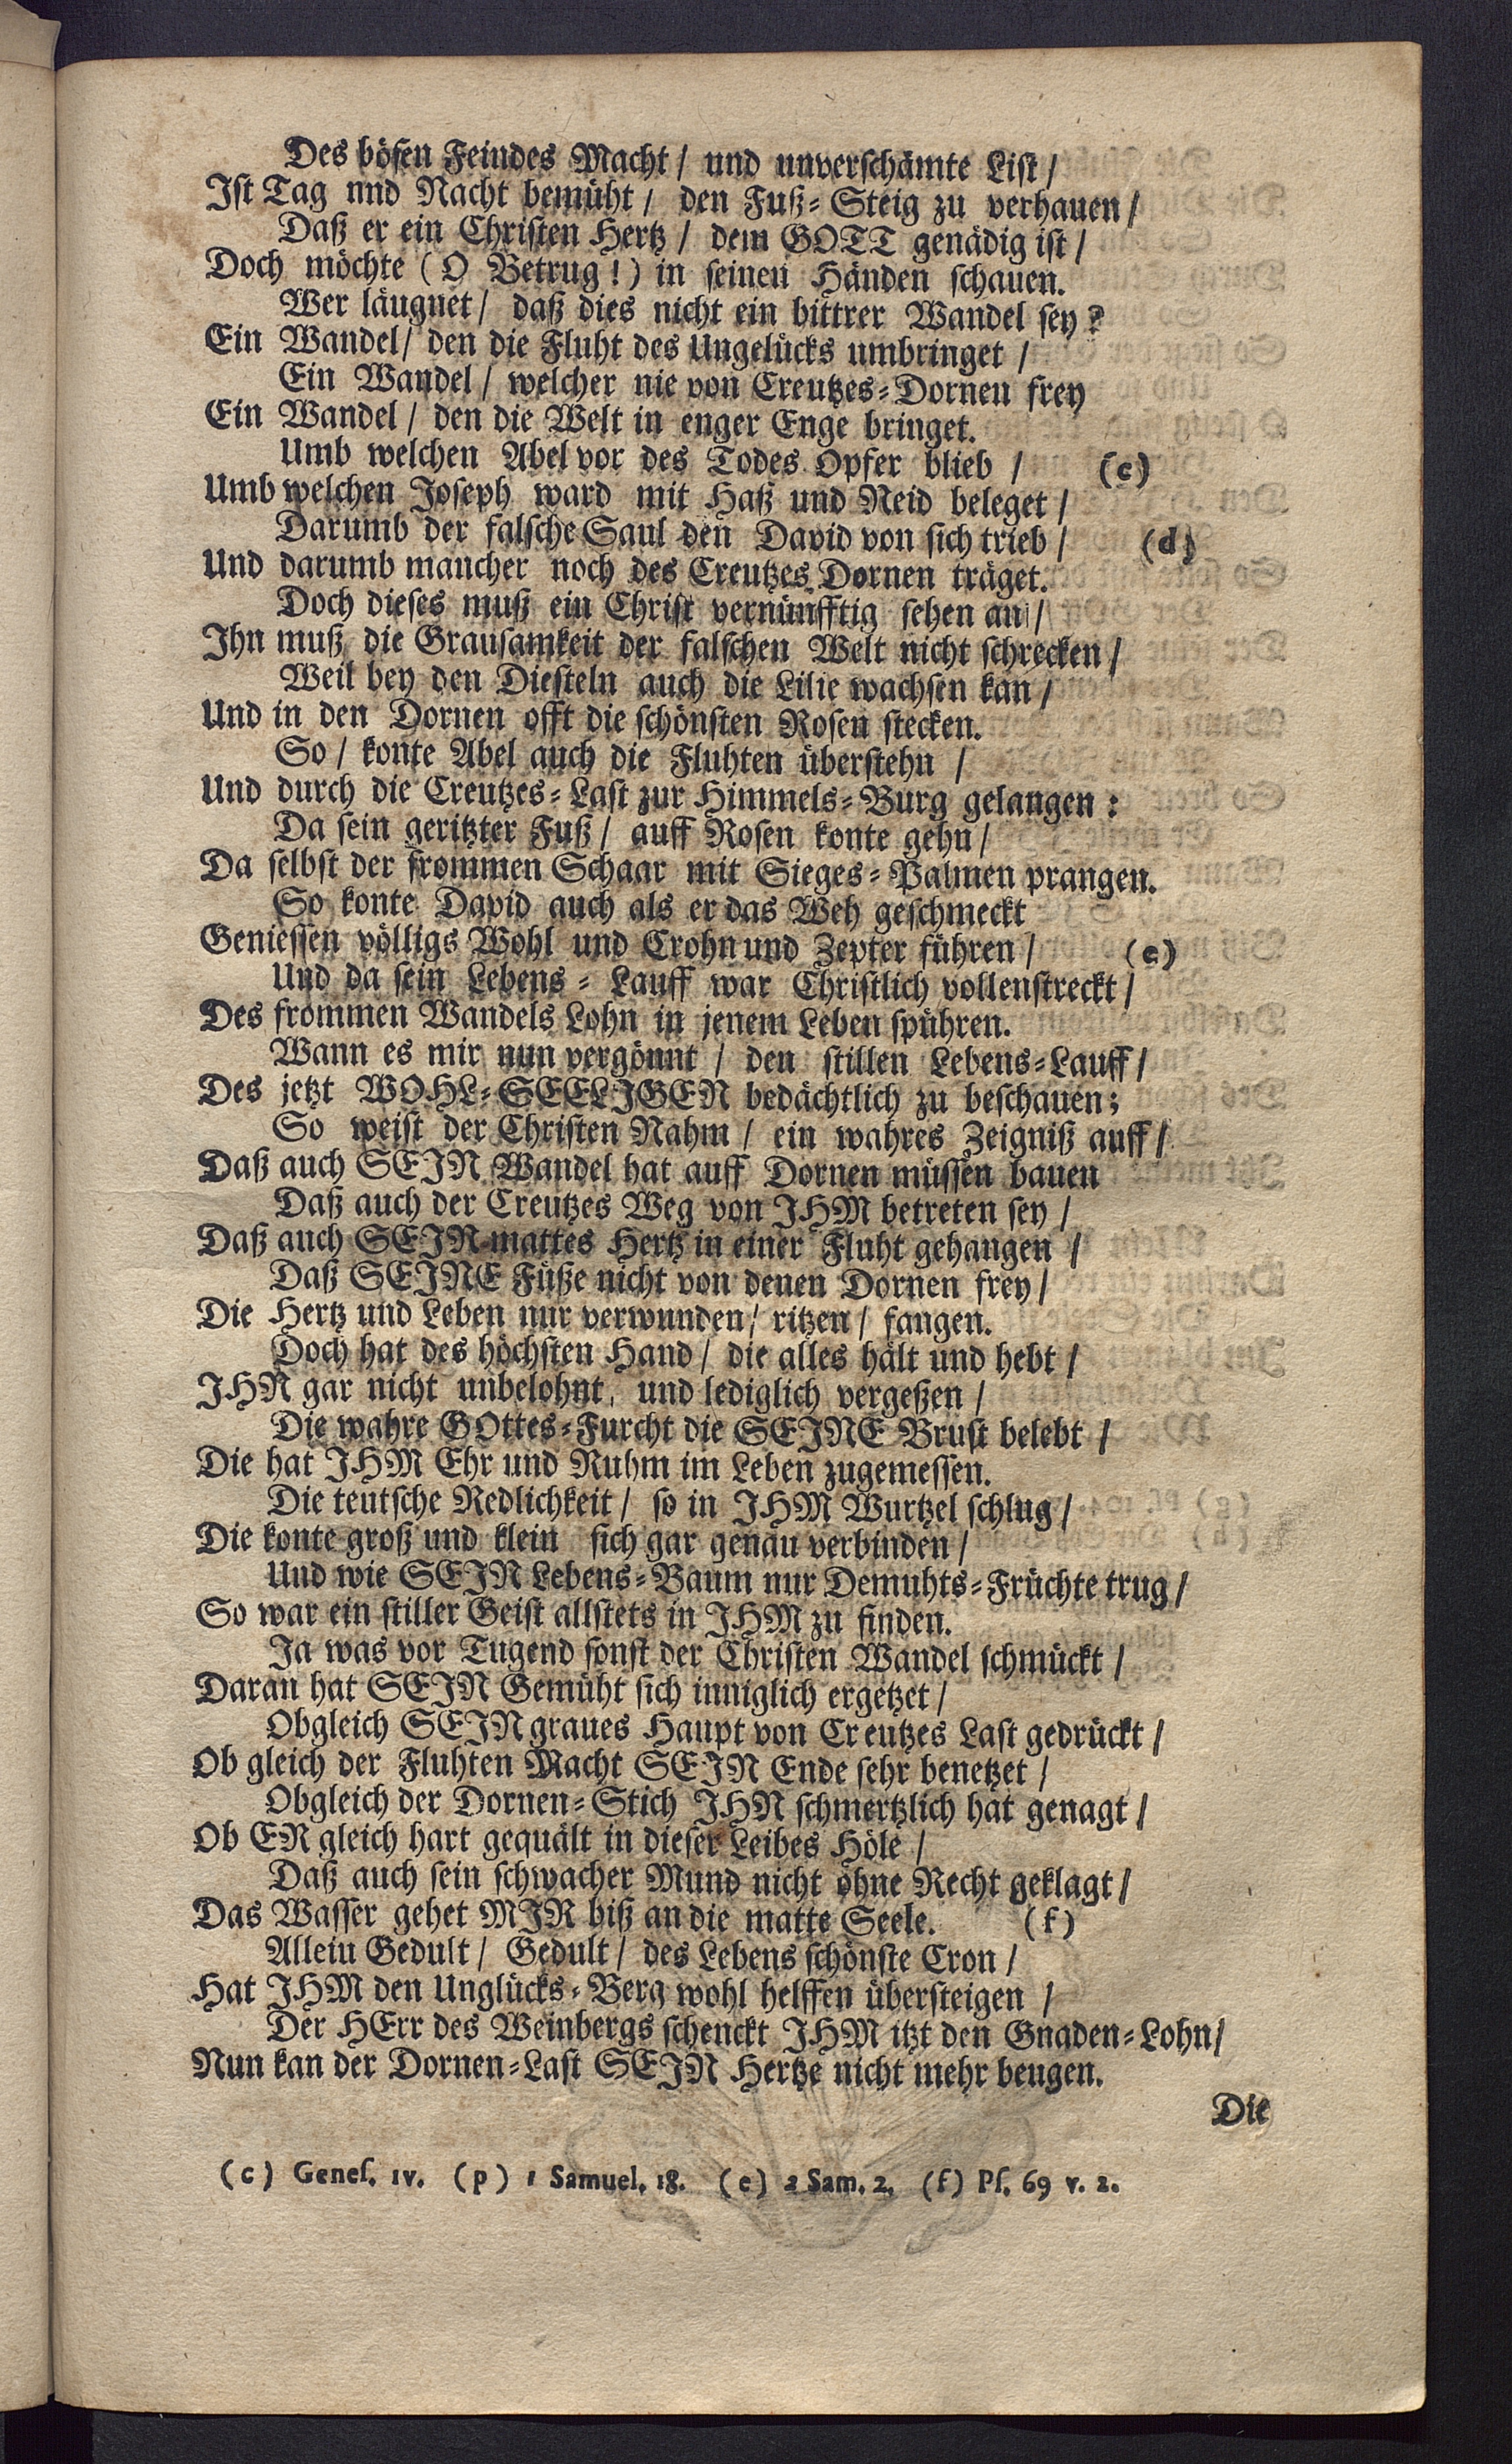 Des bösen Feindes Macht / und unverschämte List /
Ist Tag und Nacht bemüht / den Fuß-Steig zu verhauen /
Daß er ein Christen Hertz / dem GOTT genädig ist /
Doch möchte (O Betrug!) in seinen Händen schauen.
Wer läugnet / daß dies nicht ein bittrer Wandel sey?
Ein Wandel / den die Fluht des Ungelücks umbringet /
Ein Wandel / welcher nie von Creutzes-Dornen frey
Ein Wandel / den die Welt in enger Enge bringet.
Umb welchen Abel vor des Todes Opfer blieb / (c)
Umb welchen Joseph ward mit Haß und Neid beleget /
Darumb der falsche Saul den David von sich trieb / (d)
Und darumb mancher noch des Creutzes Dornen träget.
Doch dieses muß ein Christ vernünfftig sehen an /
Ihn muß die Grausamkeit der falschen Welt nicht schrecken /
Weil bey den Diesteln auch die Lilie wachsen kan /
Und in den Dornen offt die schönsten Rosen stecken.
So / konte Abel auch die Fluhten überstehn /
Und durch die Creutzes-Last zur Himmels-Burg gelangen:
Da sein geritzter Fuß / auff Rosen konte gehn /
Da selbst der frommen Schaar mit Sieges-Palmen prangen.
So konte David auch als er das Weh geschmeckt
Geniessen völligs Wohl und Crohn und Zepter führen / (e)
Und da sein Lebens-Lauff war Christlich vollenstreckt /
Des frommen Wandels Lohn in jenem Leben spühren.
Wann es mir nun vergönnt / den stillen Lebens-Lauff /
Des jetzt WOHL-SEELIGEN bedächtlich zu beschauen;
So weist der Christen Nahm / ein wahres Zeigniß auff /
Daß auch SEIN Wandel hat auff Dornen müssen bauen
Daß auch der Creutzes Weg von IHM betreten sey /
Daß auch SEIN mattes Hertz in einer Fluht gehangen /
Daß SEINE Füße nicht von denen Dornen frey /
Die Hertz und Leben nur verwunden / ritzen / fangen.
Doch hat des höchsten Hand / die alles hält und hebt /
IHN gar nicht unbelohnt, und lediglich vergeßen /
Die wahre GOttes-Furcht die SEINE Brust belebt /
Die hat IHM Ehr und Ruhm im Leben zugemessen.
Die teutsche Redlichkeit / so in IHM Wurtzel schlug /
Die konte groß und klein sich gar genau verbinden /
Und wie SEIN Lebens-Baum nur Demuhts-Früchte trug /
So war ein stiller Geist allstets in IHM zu finden.
Ja was vor Tugend sonst der Christen Wandel schmückt /
Daran hat SEIN Gemüht sich inniglich ergetzet /
Obgleich SEIN graues Haupt von Creutzes Last gedrückt /
Ob gleich der Fluhten Macht SEIN Ende sehr benetzet /
Obgleich der Dornen-Stich IHN schmertzlich hat genagt /
Ob ER gleich hart gequält in dieser Leibes Höle /
Daß auch sein schwacher Mund nicht ohne Recht geklagt /
Das Wasser gehet MIR biß an die matte Seele. (f)
Allein Gedult / Gedult / des Lebens schönste Cron /
Hat IHM den Unglücks-Berg wohl helffen übersteigen /
Der HErr des Weinbergs schenckt IHM itzt den Gnaden-Lohn /
Nun kan der Dornen-Last SEIN Hertze nicht mehr beugen.
Die
(c) Genes. IV. (p) 1 Samuel. 18. (e) 2 Sam. 2. (f) Ps. 69 v. 2.